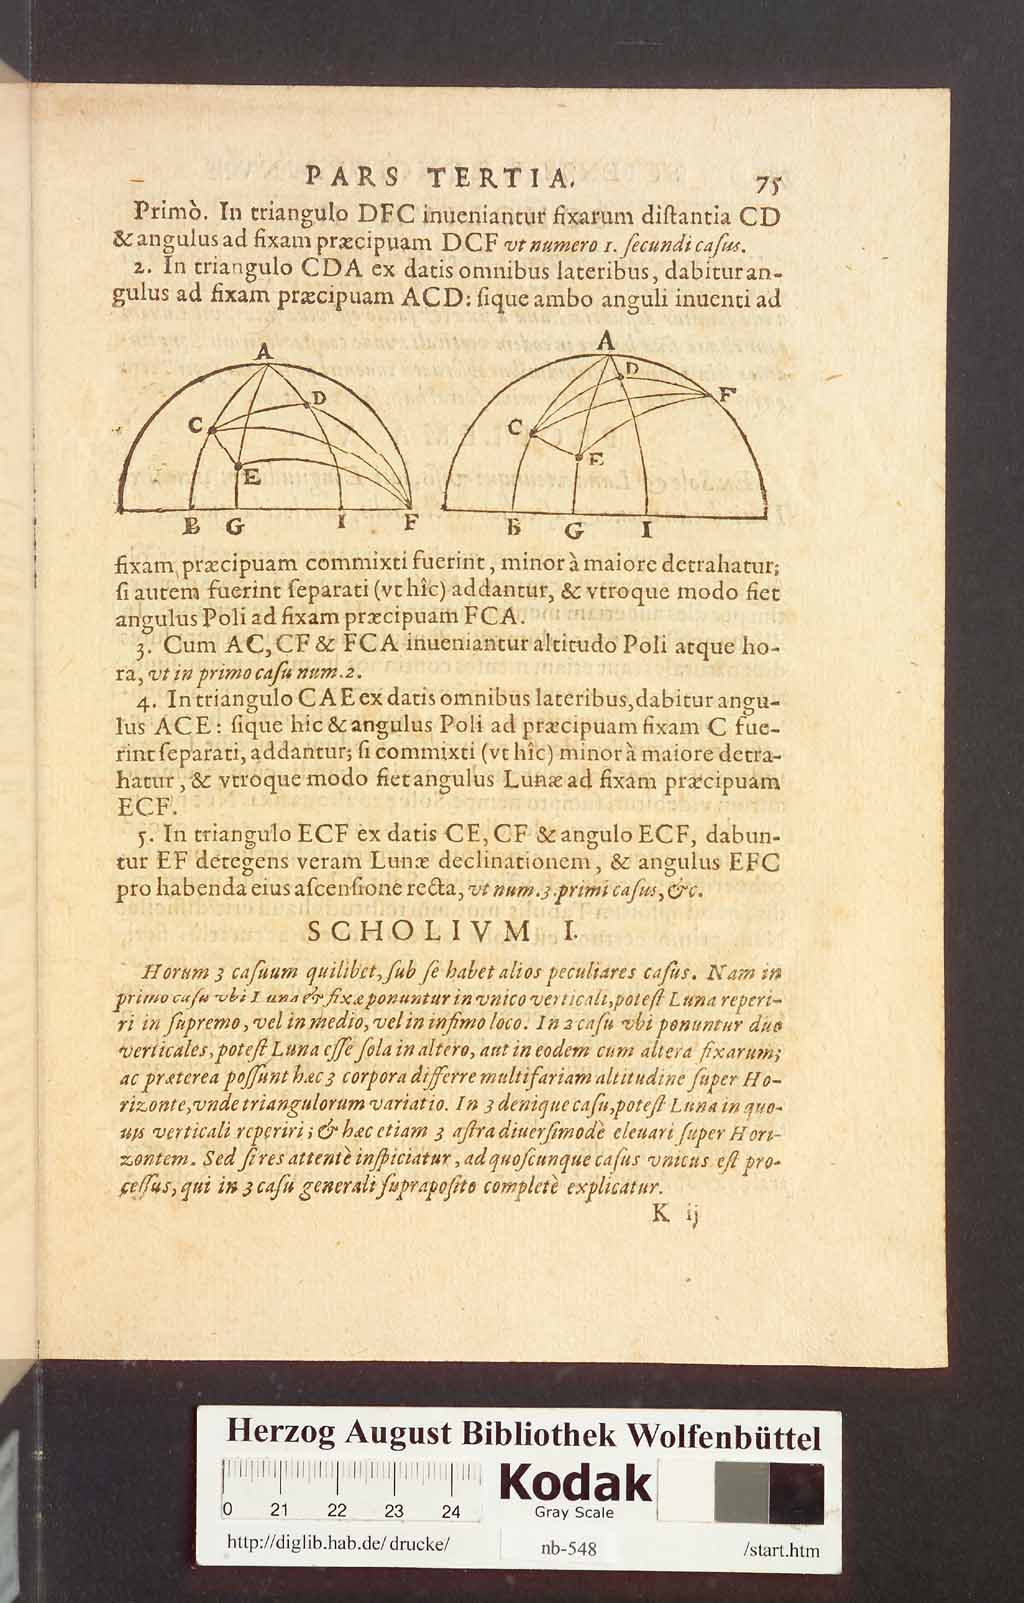 PARS TERTIA. 75
Primò. In triangulo DFC inueniantur fixarum diſtantia CD
& angulus ad fixam præcipuam DCF vt numero 1. ſecundi caſus.
2. In triangulo CDA ex datis omnibus lateribus, dabitur an-
gulus ad fixam præcipuam ACD: ſique ambo anguli inuenti ad
A
D
C
E
B G I F
A
D
F
C
E
B G I
fixam præcipuam commixti fuerint, minor à maiore detrahatur;
ſi autem fuerint ſeparati (vt hîc) addantur, & vtroque modo fiet
angulus Poli ad fixam præcipuam FCA.
3. Cum AC, CF & FCA inueniantur altitudo Poli atque ho-
ra, vt in primo caſu num. 2.
4. In triangulo CAE ex datis omnibus lateribus, dabitur angu-
lus ACE: ſique hic & angulus Poli ad præcipuam fixam C fue-
rint ſeparati, addantur; ſi commixti (vt hîc) minor à maiore detra-
hatur, & vtroque modo fiet angulus Lunæ ad fixam præcipuam
ECF.
5. In triangulo ECF ex datis CE, CF & angulo ECF, dabun-
tur EF detegens veram Lunæ declinationem, & angulus EFC
pro habenda eius aſcenſione recta, vt num. 3. primi caſus, &c.
SCHOLIVM I.
Horum 3 caſuum quilibet, ſub ſe habet alios peculiares caſus. Nam in
primo caſu vbi Luna & fixæ ponuntur in vnico verticali, poteſt Luna reperi-
ri in ſupremo, vel in medio, vel in infimo loco. In 2 caſu vbi ponuntur duo
verticales, poteſt Luna eſſe ſola in altero, aut in eodem cum altera fixarum;
ac præterea poſſunt hæc 3 corpora differre multifariam altitudine ſuper Ho-
rizonte, vnde triangulorum variatio. In 3 denique caſu, poteſt Luna in quo-
uis verticali reperiri; & hæc etiam 3 aſtra diuerſimodè eleuari ſuper Hori-
zontem. Sed ſi res attentè inſpiciatur, ad quoſcunque caſus vnicus eſt pro-
ceſſus, qui in 3 caſu generali ſupra poſito completè explicatur.
K ij
Herzog August Bibliothek Wolfenbüttel
0 21 22 23 24
Kodak
Gray Scale
http://diglib.hab.de/drucke/ nb-548 /start.htm